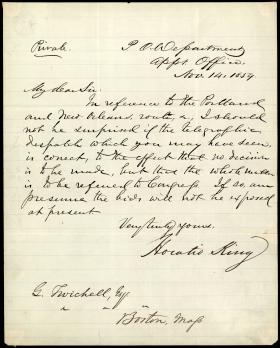 Private.
P. O. Department
Appt. Office.
Nov. 14, 1859.
My dear Sir:
In reference to the Portland
and New Orleans route, I should
not be surprised if the telegraphic
despatch which you may have seen,
is correct, to the effect that no decision
is to be made, but that the whole matter
is to be referred to Congress. If so, we
presume the bids will not be exposed
at present.
Very truly yours,
Horatio King
G. Twichell, Esq
" " "
Boston, Mass